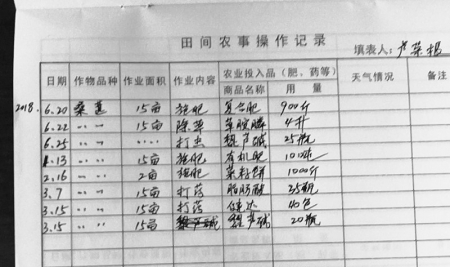 田间农事操作记录
填表人：卢荣根
日期 作物品种 作业面积 作业内容 农业投入品（肥、药等） 天气情况 备注
商品名称 用量
2018. 6.20 桑葚 15亩 施肥 复合肥 900斤
6.22 〃 〃 15亩 除草 草胺膦 4升
6.25 〃 〃 〃 〃 打虫 藜芦碱 25瓶
1.13 〃 〃 15亩 施肥 有机肥
2.16 〃 〃 2亩 施肥 菜籽饼 1000斤
3.7 〃 〃 15亩 打药 35瓶
3.15 〃 〃 15亩 打药 40包
3.15 〃 〃 15亩 藜芦碱 20瓶